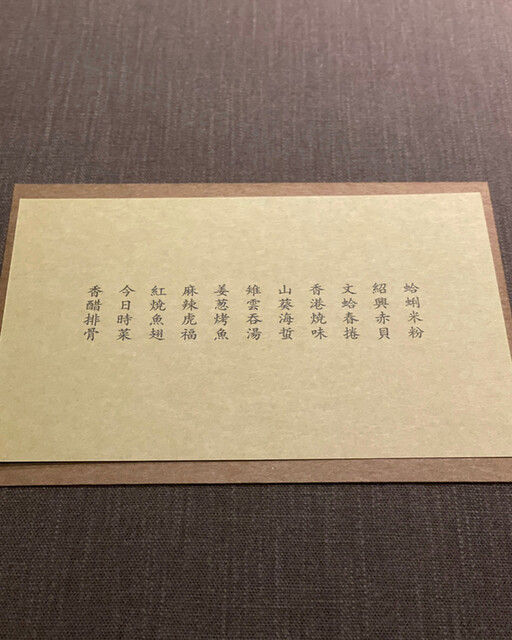 蛤蜊米粉
紹興赤貝
文蛤春捲
香港燒味
山葵海蜇
雉雲吞湯
姜葱烤魚
麻辣虎福
紅燒魚翅
今日時菜
香醋排骨